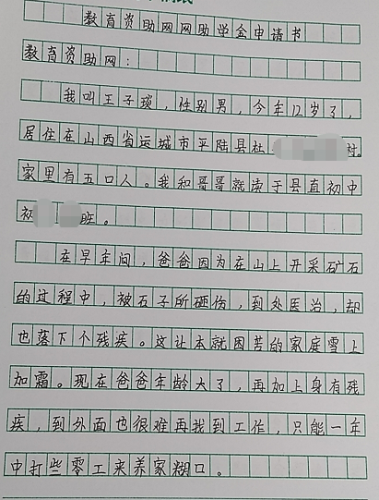 教育资助网网助学金申请书
教育资助网：
我叫王子琰，性别男，今年12岁了，
居住在山西省运城市平陆县杜村。
家里有五口人。我和哥哥就读于县直初中
初班。
在早年间，爸爸因为在山上开采矿石
的过程中，被石子所砸伤，到处医治，却
也落下个残疾。这让本就困苦的家庭雪上
加霜。现在爸爸年龄大了，再加上身有残
疾，到外面也很难再找到工作，只能一年
中打些零工来养家糊口。